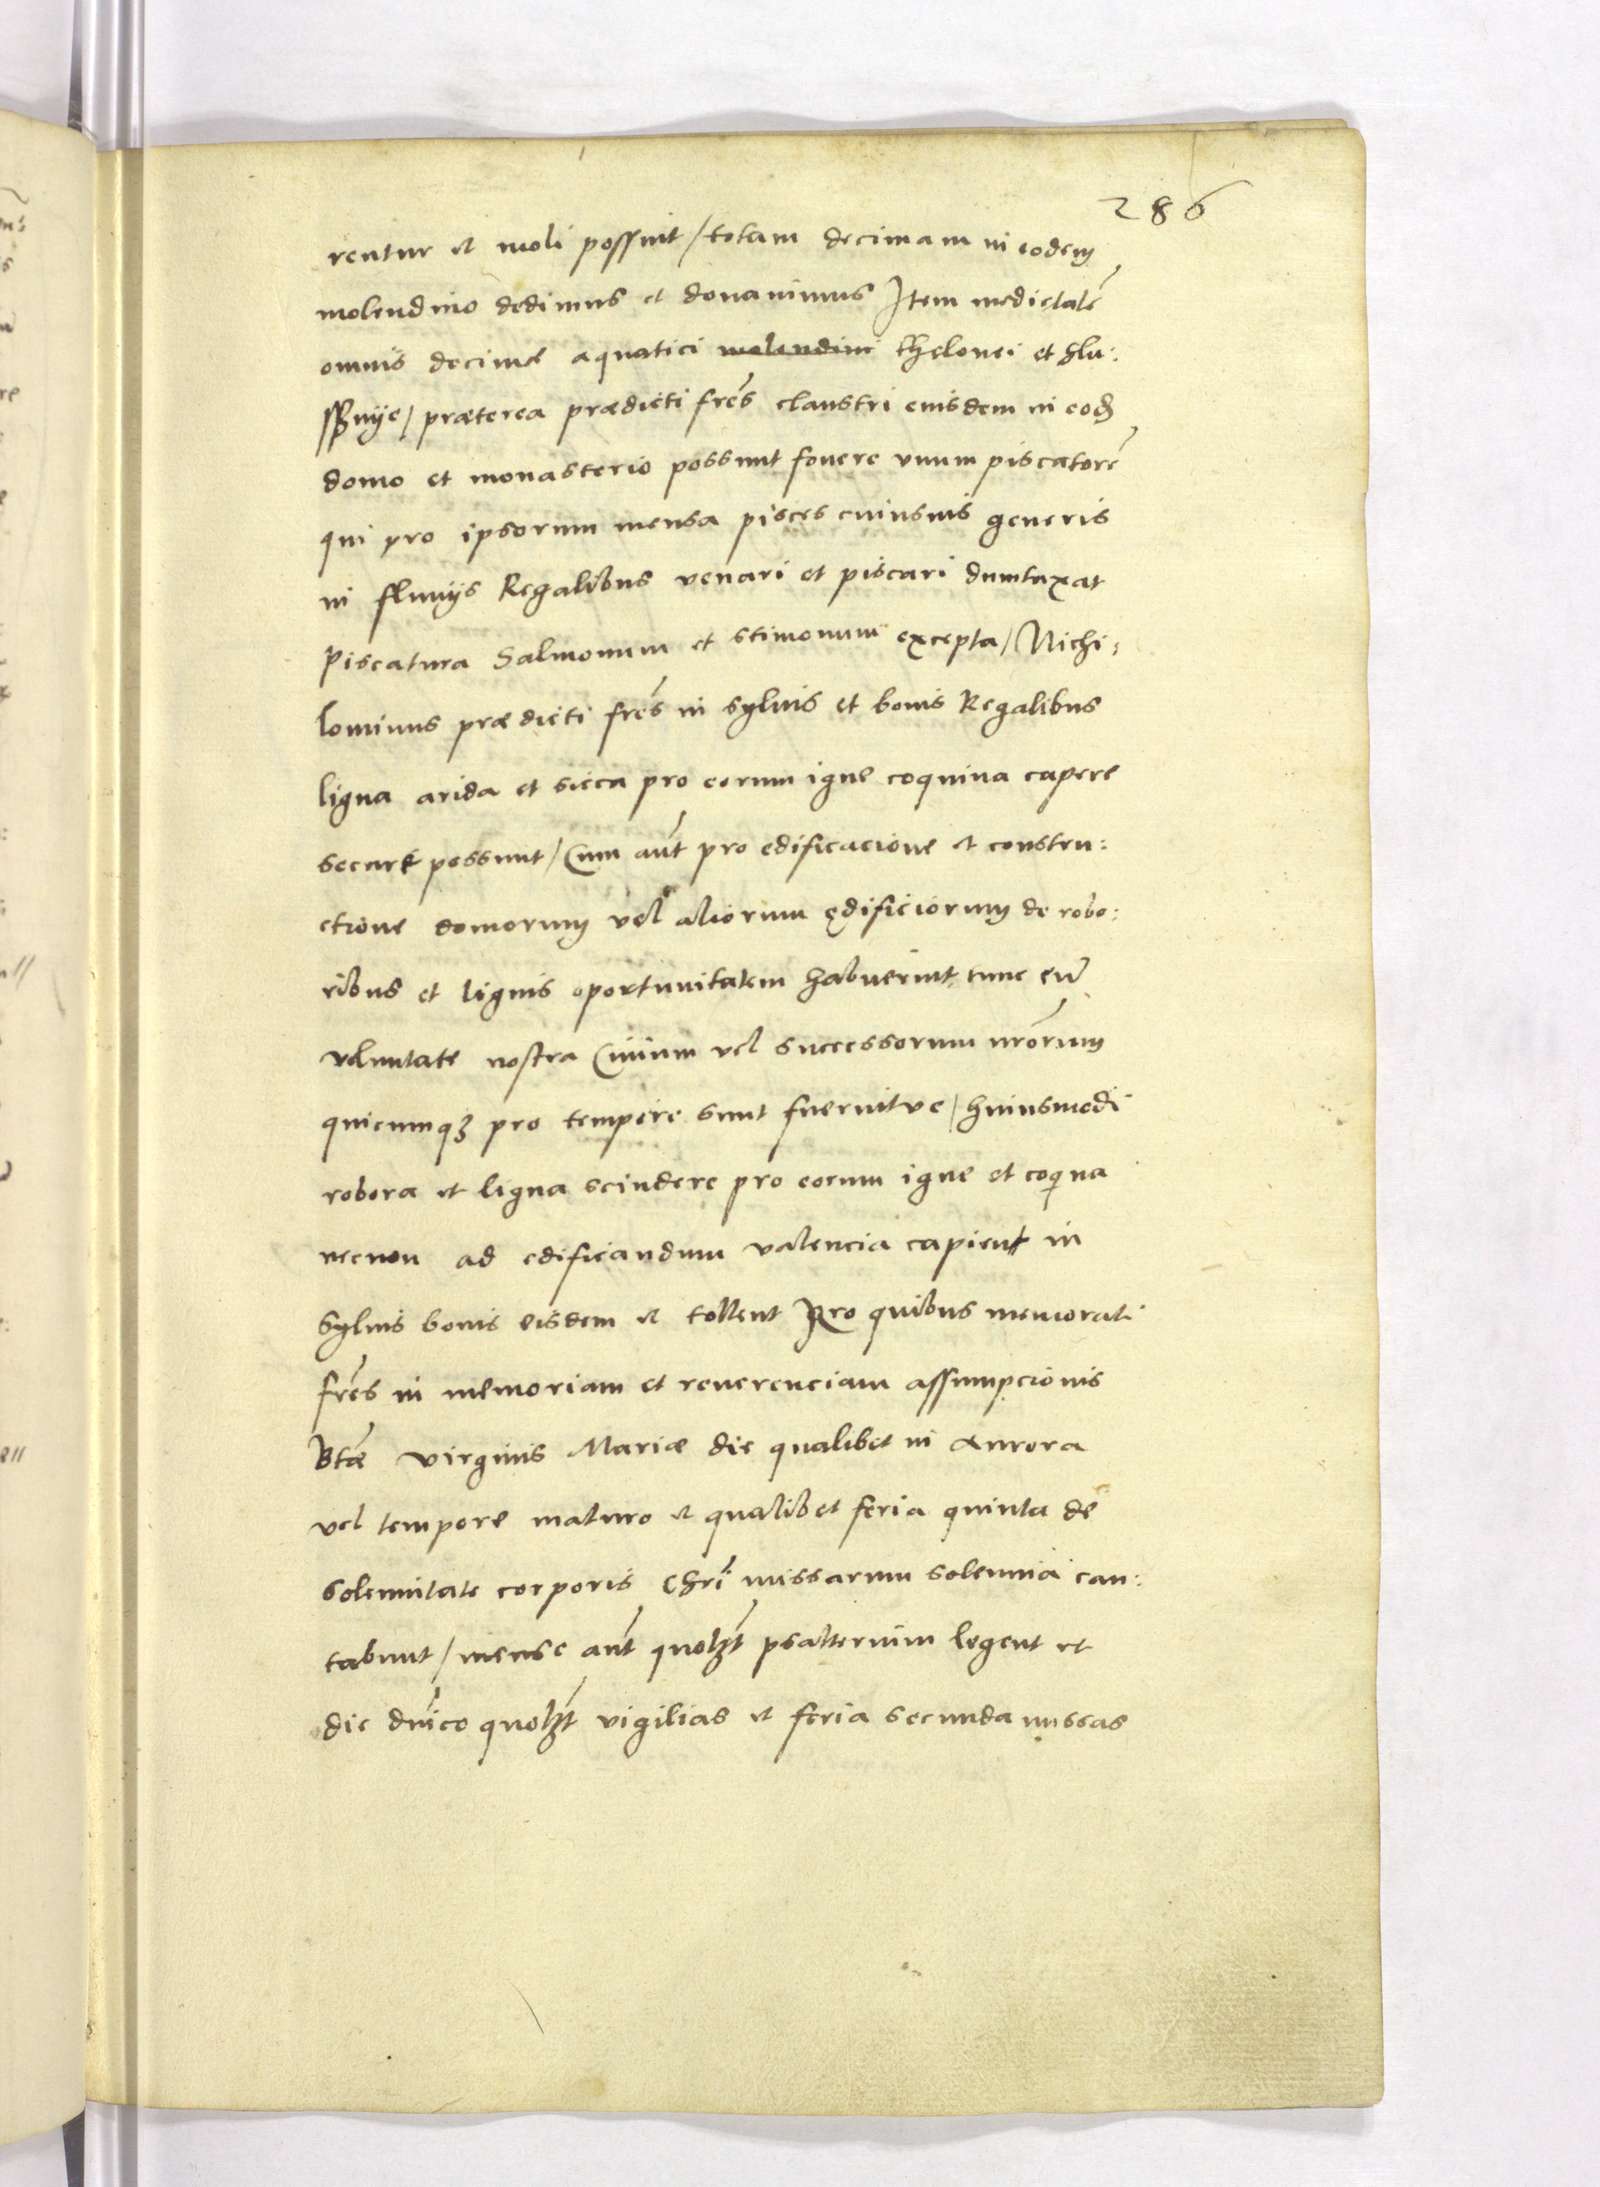 286
rentur et moli possint / totam decimam in eodem
molendino dedimus et donavimus Item medietatē
omnis decimæ aquatici molendini thelonei et Slu:
/ præterea prædicti frēs claustri eiusdem in eod
domo et monasterio possunt fovere unum piscatorē
qui pro ipsorum mensa pisces cuiusvis generis
in fluvijs Regalibus venari et piscari dumtaxat
Piscatura Salmonum et stimonum excepta / Nichi:
lominus prædicti frēs in sylvis et bonis Regalibus
ligna arida et sicca pro eorum igne coquina capere
secure possunt / Cum aūt pro edificacione et constru:
ctione domorum vel aliorum ędificiorum de robo:
ribus et lignis oportunitatem habuerint tunc cū
voluntate nostra Civium vel successorum nrōrum
quicumqꝫ pro tempore sunt fuerintve / huiusmodi
robora et ligna scindere pro eorum igne et coqina
necnon ad edificandum valencia capient in
Sylvis bonis eisdem et tollent Pro quibus memorati
frēs in memoriam et reverenciam assumpcionis
Btæ Virginis Mariæ die qualibet in Aurora
vel tempore maturo et qualibet feria quinta de
Solennitate corporis Chrī missarum solennia can:
tabunt / mense aūt quolꝫt psalterium legent et
die dnīco quolꝫt vigilias et feria secunda missas